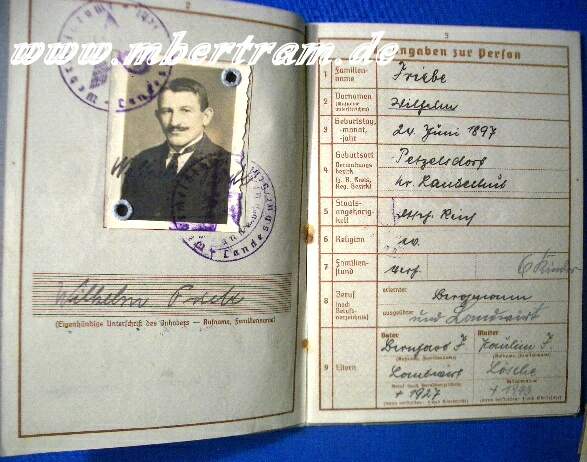 www.mbertram.de
2
Wilhelm Friebe
(Eigenhändige Unterschrift des Inhabers — Rufname, Familienname)
3
Angaben zur Person
1 Familien-
name
Friebe
2 Vornamen
(Rufname
unterstreichen)
Wilhelm
3 Geburtstag,
-monat,
-jahr
24. Juni 1897
4 Geburtsort
Verwaltungs-
bezirk
(z. B. Kreis,
Reg. Bezirk)
Petzelsdorf
Kr. Landeshut
5 Staats-
angehörig-
keit
6 Religion
ev.
7 Familien-
stand
verh
6 Kinder
8 Beruf
(nach
Berufs-
verzeichnis)
erlernter
Bergmann
ausgeübter
und Landwirt
9 Eltern
Vater
Mutter
Bernhard F.
Pauline F.
(Rufname, Familienname)
Landwirt
Lösche
+ 1927